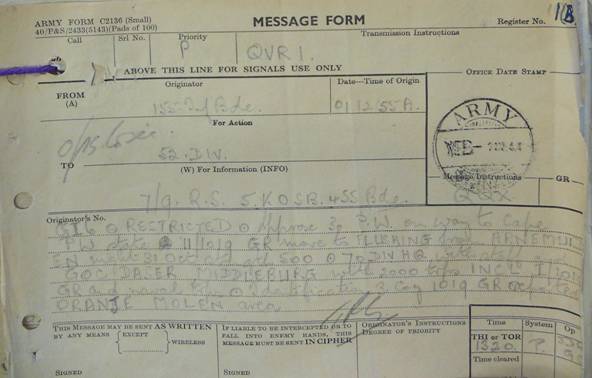 ARMY FORM C2136 (Small)
40/P&S/2433(5143)(Pads of 100)
MESSAGE FORM
Register No. 18
Call Srl No. Priority Transmission Instructions
P QVR 1.
ABOVE THIS LINE FOR SIGNALS USE ONLY
OFFICE DATE STAMP
FROM (A) Originator Date—Time of Origin
155 Inf Bde. 011255A
For Action
TO 52 DIV.
(W) For Information (INFO)
7/9. R.S. 5. KOSB. 455. Bde.
ARMY
Message Instructions GR
Originator's No.
RESTRICTED approx 30 PW on way to cage
PW state 11/1019 GR move to FLUSHING from ARNEMUIDEN
night 31 Oct at 500 70 DIV HQ with
GOC DASER MIDDLEBURG with 2000 tps INCL
GR and naval identification 3 Coy 1019 GR reported
ORANJE MOLEN area
THIS MESSAGE MAY BE SENT AS WRITTEN
BY ANY MEANS EXCEPT WIRELESS
SIGNED
IF LIABLE TO BE INTERCEPTED OR TO
FALL INTO ENEMY HANDS, THIS
MESSAGE MUST BE SENT IN CIPHER
SIGNED
ORIGINATOR'S INSTRUCTIONS
DEGREE OF PRIORITY
Time System Op
THI or TOR
1320 P.
Time cleared